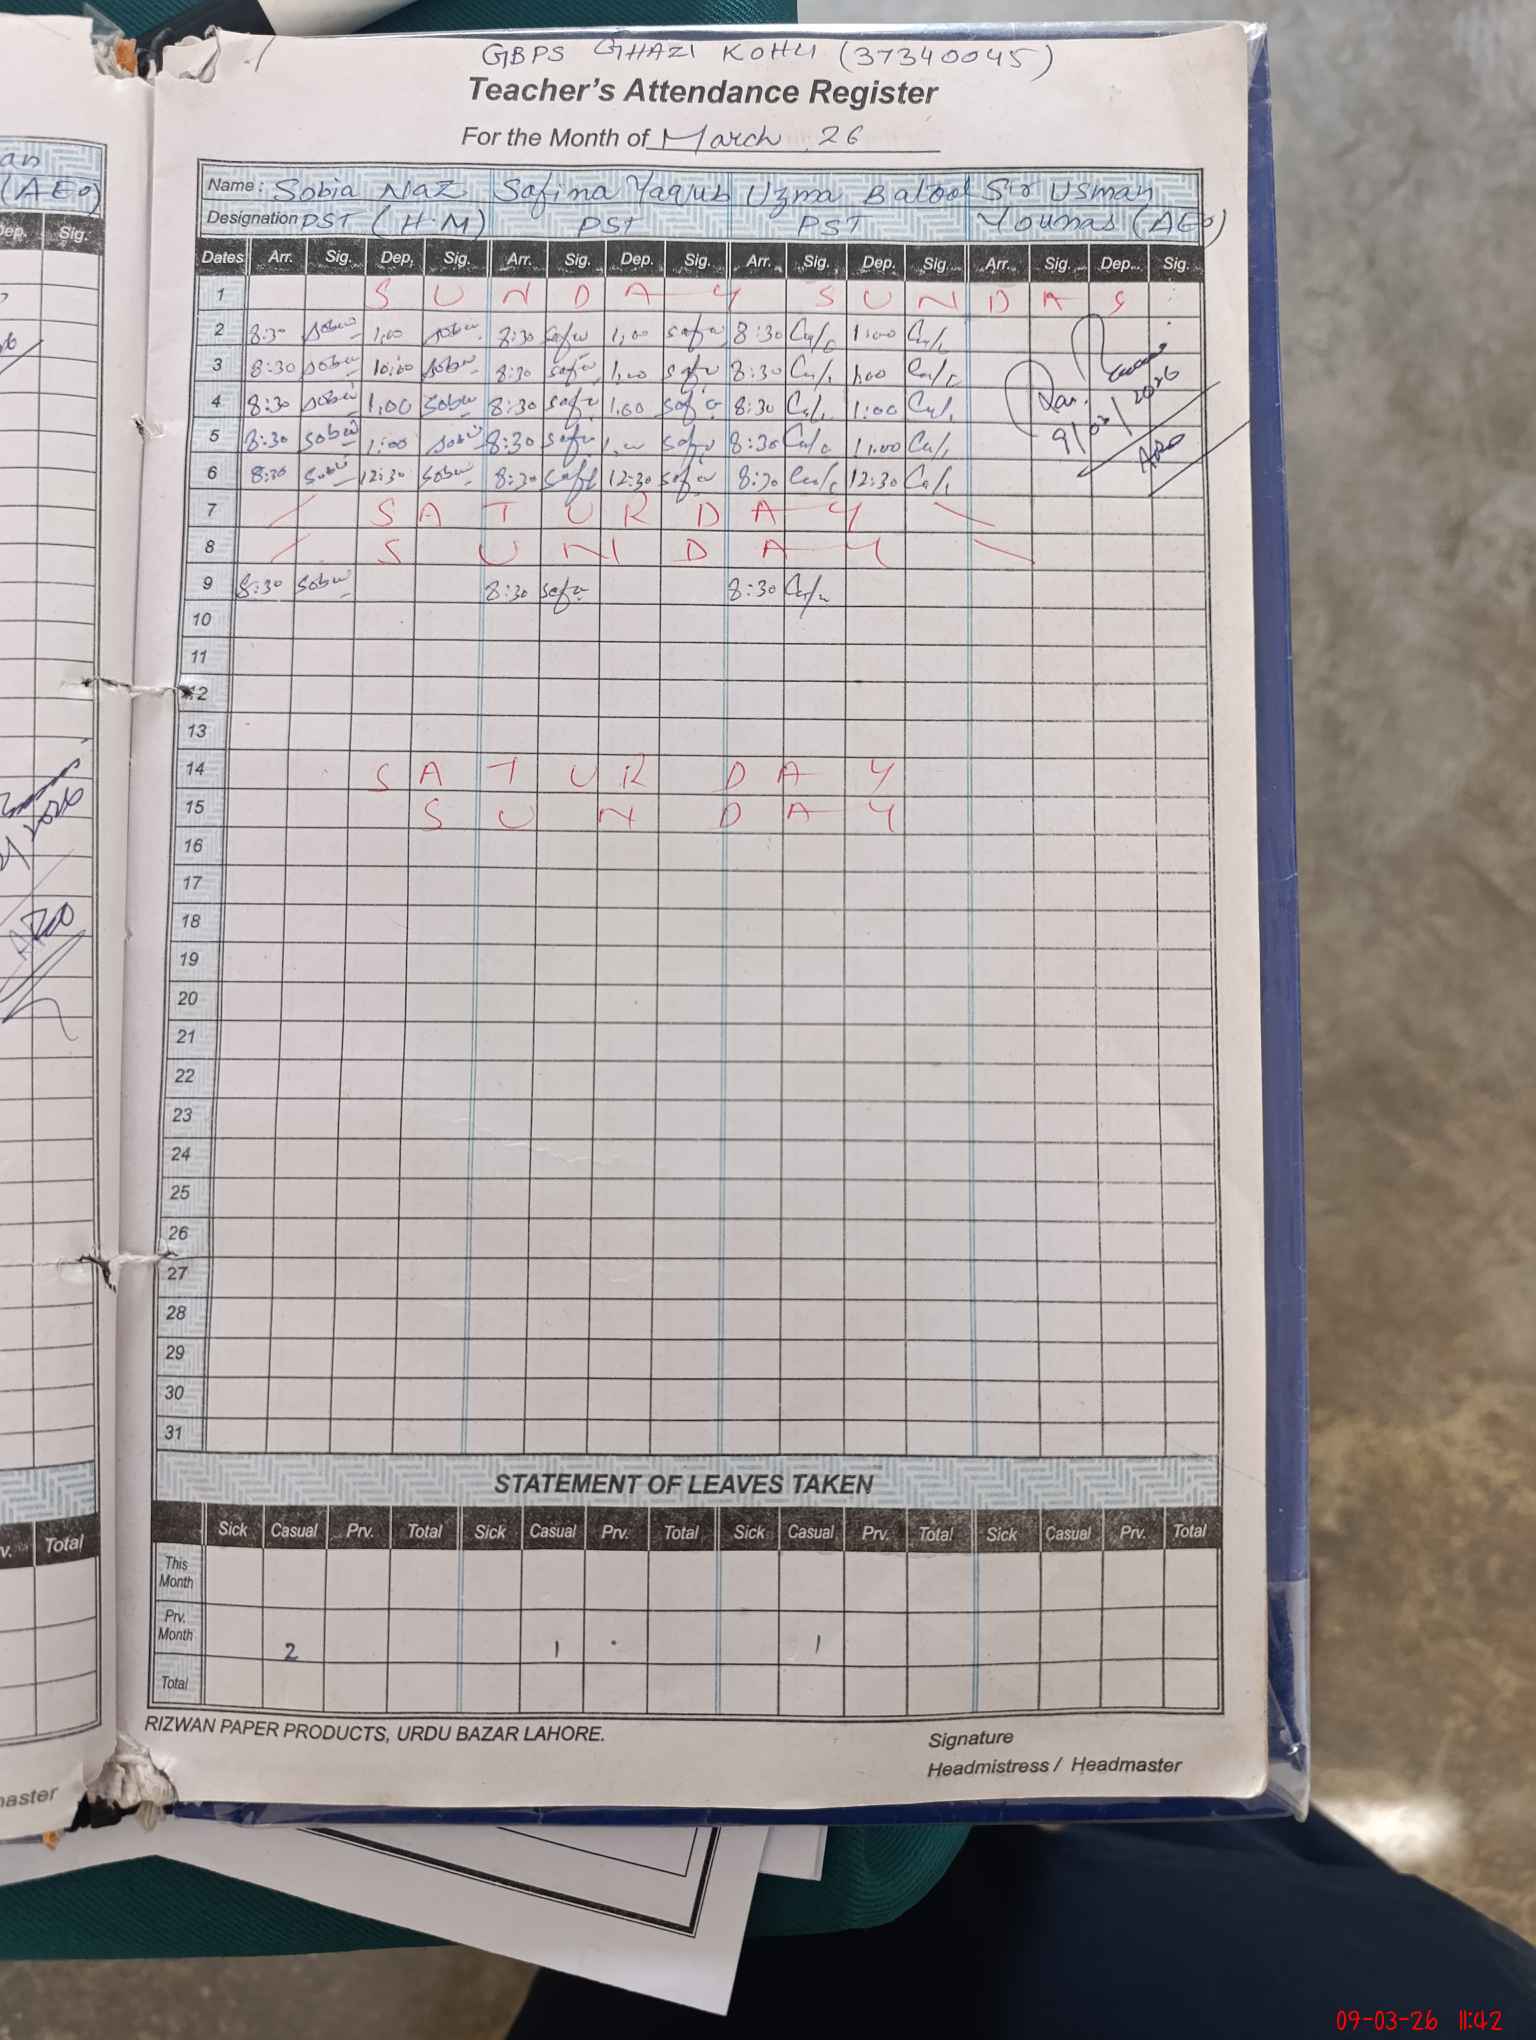 GBPS GHAZI KOHLI (37340045)
Teacher's Attendance Register
For the Month of March 26
Name: Sobia Naz Safina Yaqub Uzma Batool Sir Usman
Designation PST (H.M) PST PST Younas (AEO)
Dates Arr. Sig. Dep. Sig. Arr. Sig. Dep. Sig. Arr. Sig. Dep. Sig. Arr. Sig. Dep. Sig.
1 SUNDAY SUNDAY
2 8:30 1:00 8:30 1:00 8:30 1:00
3 8:30 10:00 8:30 1:00 8:30 1:00
4 8:30 1:00 8:30 1:00 8:30 1:00
5 8:30 1:00 8:30 8:30 1:00
6 8:30 12:30 8:30 12:30 8:30 12:30
7 SATURDAY
8 SUNDAY
9 8:30 8:30 8:30
10
11
12
13
14 SATURDAY
15 SUNDAY
16
17
18
19
20
21
22
23
24
25
26
27
28
29
30
31
STATEMENT OF LEAVES TAKEN
Sick Casual Prv. Total Sick Casual Prv. Total Sick Casual Prv. Total Sick Casual Prv. Total
This Month
Prv. Month 2 1 1
Total
RIZWAN PAPER PRODUCTS, URDU BAZAR LAHORE.
Signature
Headmistress / Headmaster
(AEO)
Dep. Sig.
2026
Total
09-03-26 11:42